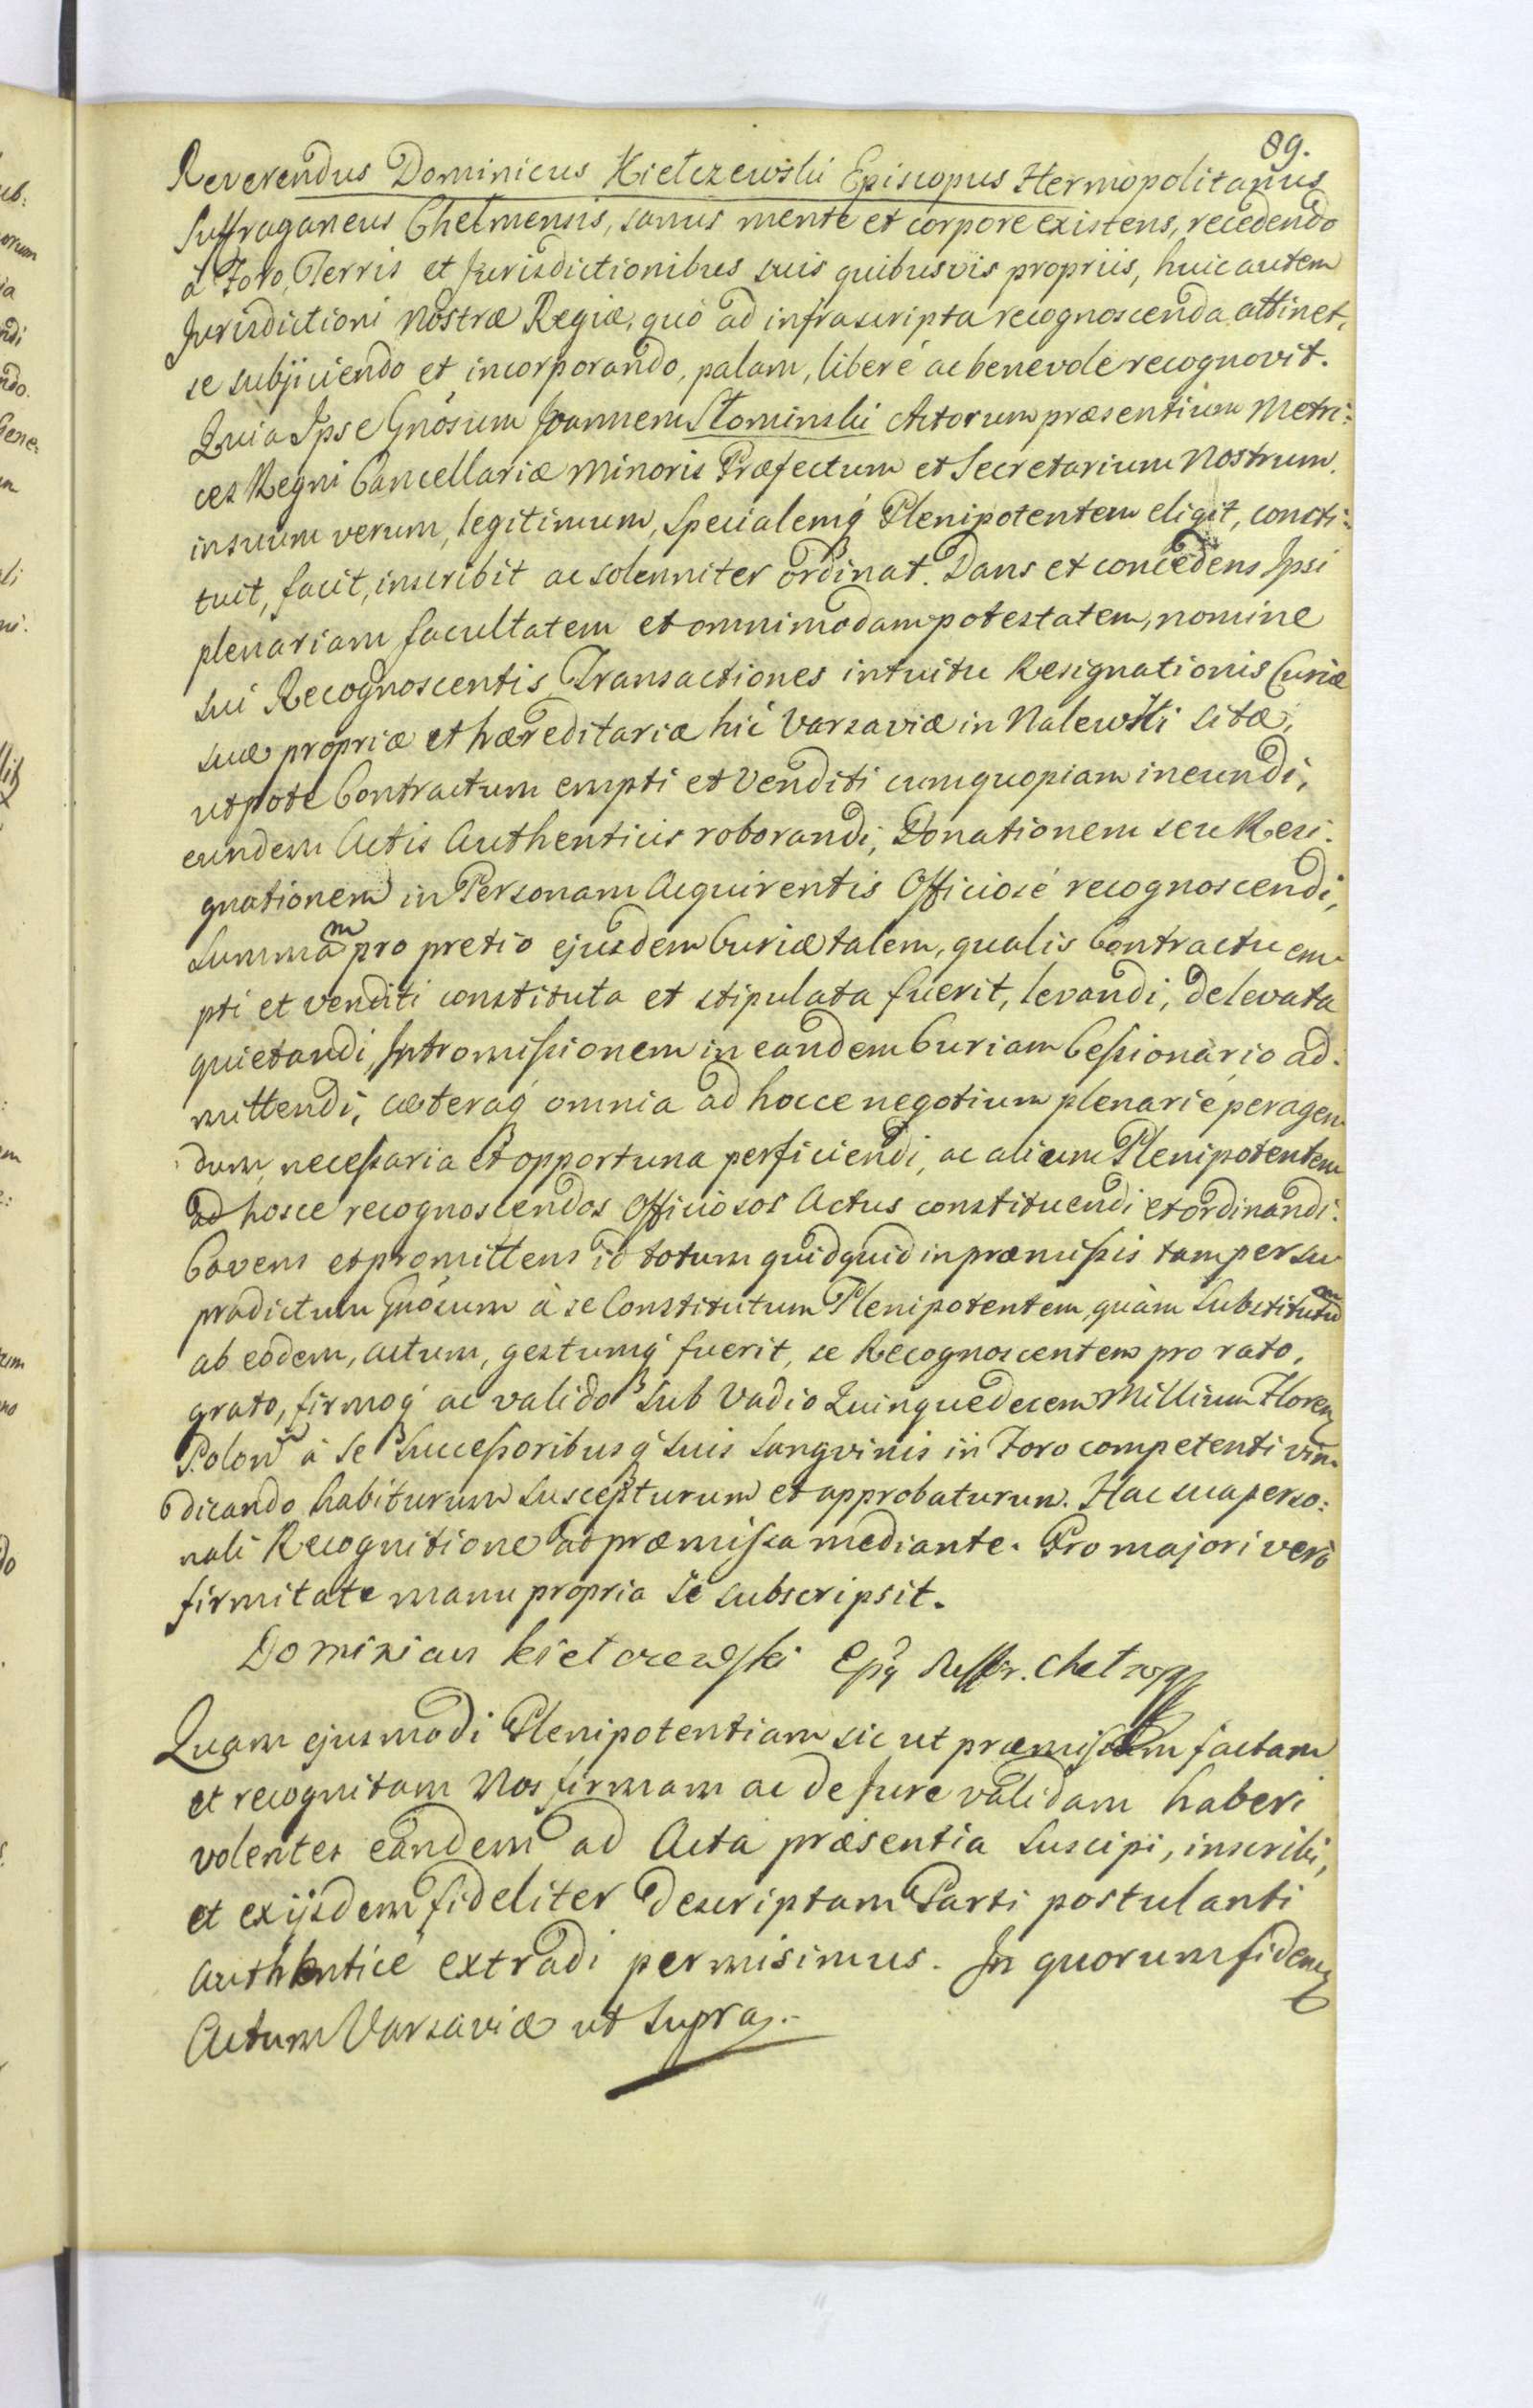 89.
Reverendus Dominicus Kiełczewski Episcopus Hermopolitanus
Suffraganeus Chelmensis, sanus mente et corpore existens, recedendo
à Foro, Terris et Jurisdictionibus suis quibusvis propriis, huic autem
Jurisdictioni Nostræ Regiæ, quò ad infrascripta recognoscenda attinet,
se subjiciendo et incorporando, palam, liberè ac benevolè recognovit.
Quia Ipse Gnosum Joannem Słominski Actorum præsentium Metri:
ces Regni Cancellariæ Minoris Præfectum et Secretarium Nostrum
in suum verum, legitimum, Specialemq́ Plenipotentem eligit, consti:
tuit, facit, inscribit ac solenniter ordinat. Dans et concedens Ipsi
plenariam facultatem et omnimodam potestatem, nomine
sui Recognoscentis Transactiones intuitu Resignationis Curiæ
suæ propriæ et hæreditariæ hic Varsaviæ in Nalewki sitæ,
utpote Contractum empti et Venditi cum quopiam ineundi,
eundem Actis Authenticis roborandi, Donationem seu Resi:
gnationem in Personam Acquirentis Officiosè recognoscendi,
Summam pro pretio ejusdem Curiæ talem, qualis Contractu em
pti et venditi constituta et stipulata fuerit, levandi, de levata
quietandi, Intromissionem in eandem Curiam Cessionario ad:
mittendi, cæteraq́ omnia ad hocce negotium plenariè peragen
dum, necessaria et opportuna perficiendi, ac alium Plenipotentem
ad hosce recognoscendos Officiosos Actus constituendi et ordinandi.
Cavens et promittens id totum quidquid in præmissis tam per su
pradictum Gnosum à se Constitutum Plenipotentem, quàm Substitutum
ab eodem, actum, gestumq́ fuerit, se Recognoscentem pro rato,
grato, firmoq́ ac valido Sub Vadio Quinquedecem Millium Floren
Polon à Se Successoribusq́ Suis Sangvinis in Foro competenti vin
dicando habiturum suscepturum et approbaturum. Hac sua perso:
nali Recognitione ad præmissa mediante. Pro majori verò
firmitate manu propria se subscripsit.
Dominicus Kiełczewski Epq Suffr. Chełm
Quam ejusmodi Plenipotentiam sic ut præmissum factam
et recognitam Nos firmam ac de Jure validam haberi
volentes eandem ad Acta præsentia Suscipi, inscribi,
et ex ijsdem fideliter descriptam Parti postulanti
Authenticè extradi permisimus. In quorum fidem
Actum Varsaviæ ut Supra.